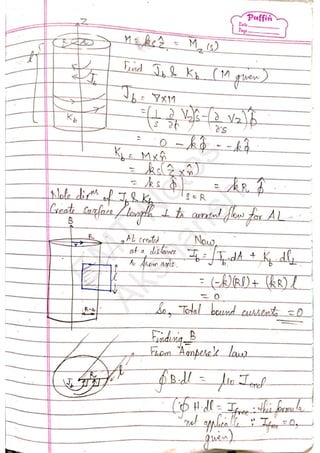 Puffin
Date
Page
Z
M = ks ẑ = M_z(s)
Find J_b & K_b (M given)
J_b
K_b
J_b = ∇×M
= (1/s ∂/∂φ V_z) ŝ - (∂/∂s V_z) φ̂
= 0 - kφ̂ = -kφ̂
K_b = M×n̂
= ks(ẑ×n̂)
= ks φ̂ |s=R = kR φ̂
Note dirns of J_b & K_b
Create surface/length ⊥ to current flow for AL
B
AL created
at a distance
r from axis.
Now,
I_b = ∫J_b.dA + K_b dl⊥
= (-k)(Rl) + (kR) l
= 0
So, Total bound currents = 0
Finding B
From Ampere's law
∮B.dl = μ₀ I_encl
(∮H.dl = I_free : this formula
not applicable ∵ I_free = 0,
given)